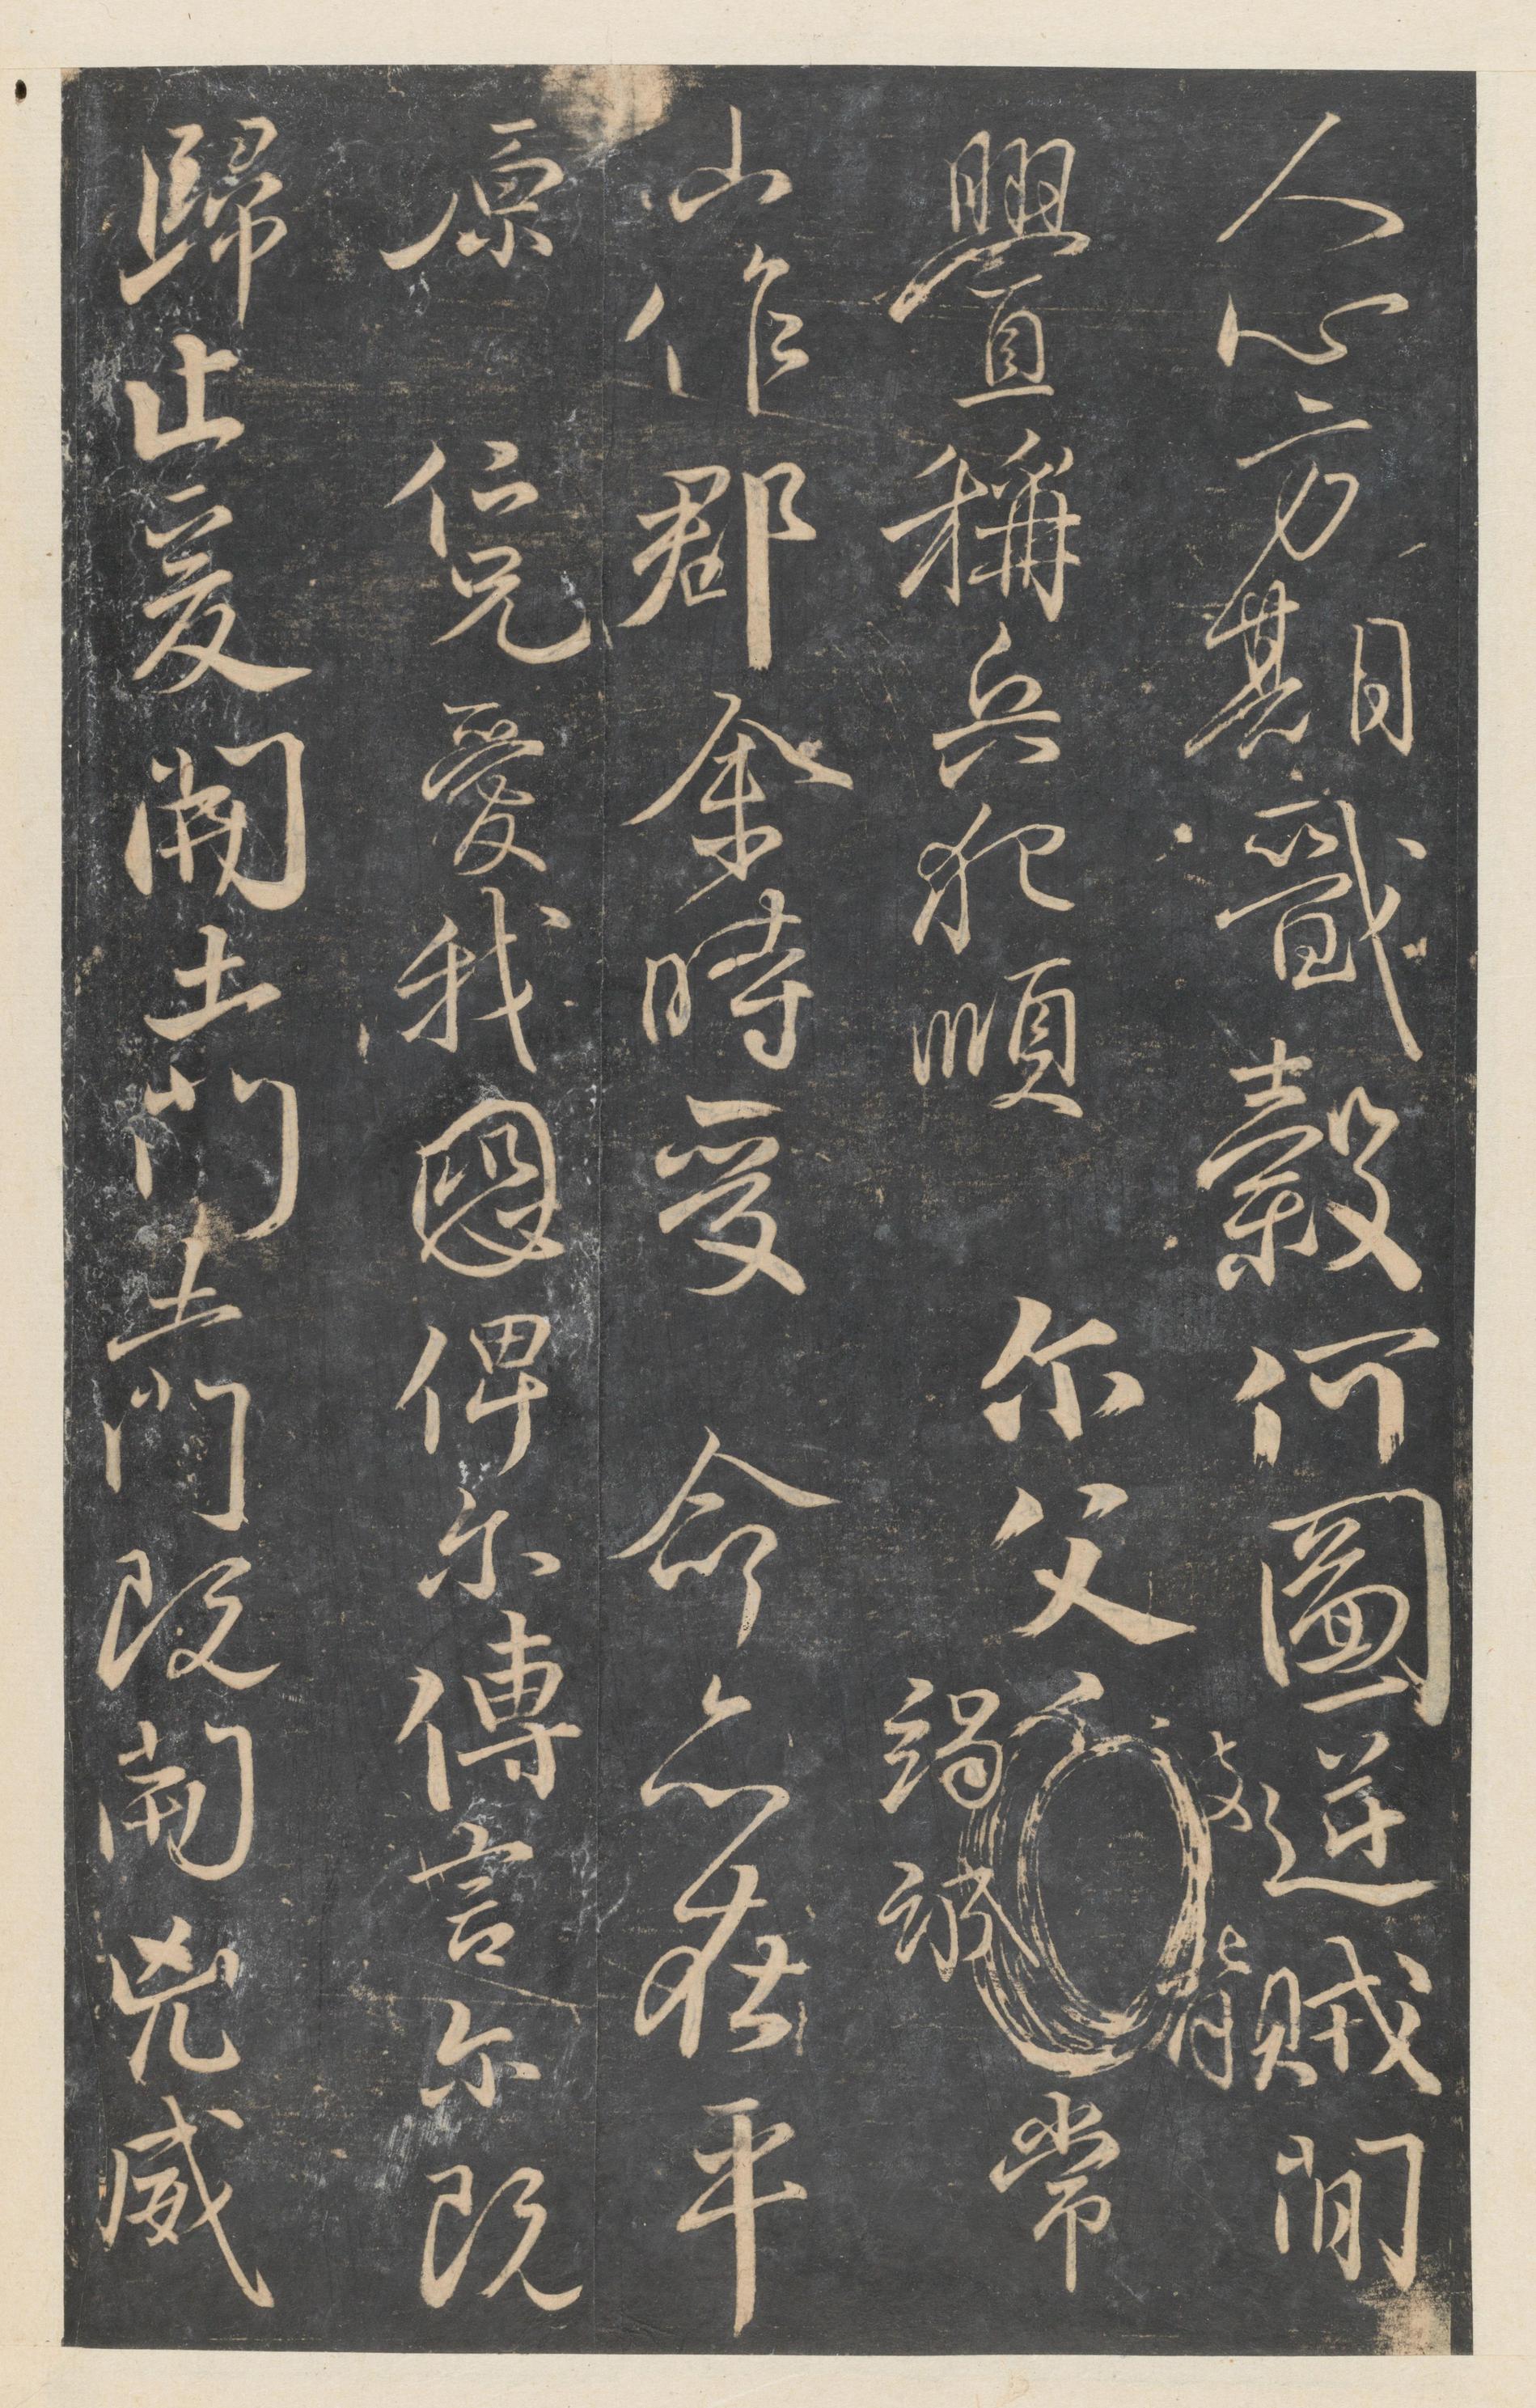 人心方期戩穀何圖逆賊閒
舋稱兵犯順 尔父竭誠常
山作郡余時受 命亦在平
原 仁兄愛我恩俾尔傳言尔既
歸止爰開土門土門既開凶威